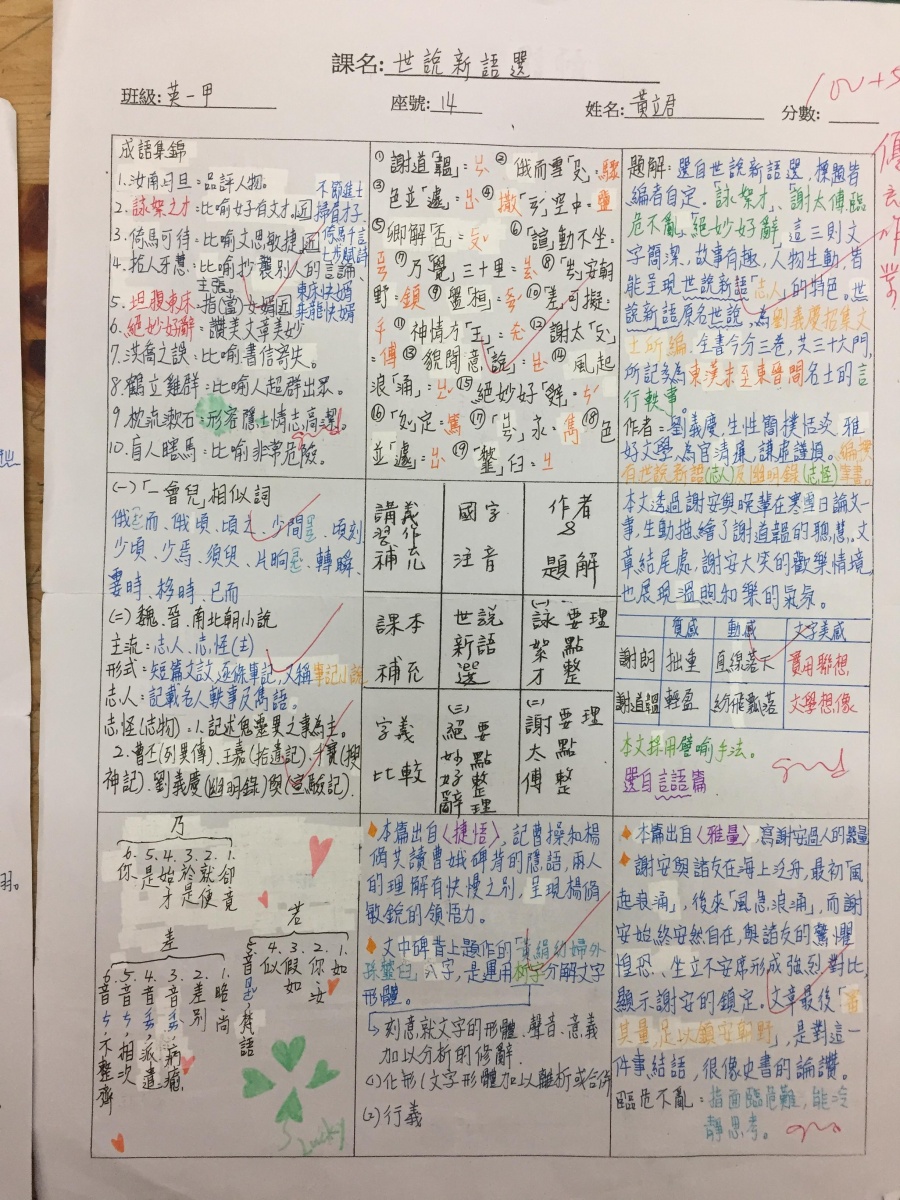 課名: 世說新語選
班級: 英一甲 座號: 14 姓名: 黃立君 分數: 100+5
成語集錦
1.汝南月旦:品評人物。
2.詠絮之才:比喻女子有文才。 不節進士
掃眉才子
3.倚馬可待:比喻文思敏捷 倚馬千言
七步賦詩
4.拾人牙慧:比喻抄襲別人的言論
主張。
5.坦腹東床:指(當)女婿 東床快婿
乘龍快婿
6.絕妙好辭:讚美文章美妙
7.洪喬之誤:比喻書信寄失。
8.鶴立雞群:比喻人超群出眾。
9.枕流漱石:形容隱士情志高潔。
10.盲人瞎馬:比喻非常危險。
good
①謝道「韞」= ②俄而雪「 」:驟
③色並「遽」= ④撒「 」空中=鹽
⑤鄉解「否」= ⑥「諠」動不坐=
⑦乃「覺」三十里= ⑧「 」安朝
野:鎮 ⑨盤「桓」= ⑩差「可擬」=
⑪神情方「王」= ⑫謝太「 」
=傅 ⑬貌閒意「說」= ⑭風起
浪「涌」= ⑮絕妙好「 」=
⑯「 」定:篤 ⑰「 」永:雋 ⑱色
並「遽」= ⑲「虀」臼=
題解:選自世說新語選,標題皆
編者自定。「詠絮才」、「謝太傅臨
危不亂」、「絕妙好辭」這三則文
字簡潔,故事有趣,人物生動,皆
能呈現世說新語「志人」的特色。世
說新語原名世說,為劉義慶招集文
士所編。全書今分三卷,共三十六門,
所記多為東漢末至東晉間名士的言
行軼事。
作者:劉義慶,生性簡樸恬淡,雅
好文學,為官清廉,謙虛謹慎。編撰
有世說新語(志人)及幽明錄(志怪)等書。
(一)「一會兒」相似詞
俄而、俄頃、頃之、少間、頃刻
少頃、少焉、須臾、片晌、轉瞬、
霎時、移時、已而
(二)魏、晉、南北朝小說
主流:志人、志怪(主)
形式:短篇文散,逐條筆記,又稱筆記小說
志人:記載名人軼事及雋語。
志怪(志物):1.記述鬼靈異之事為主。
2.曹丕(列異傳)、王嘉(拾遺記)、干寶(搜
神記)、劉義慶(幽明錄)與(宣驗記)
講義習作補充
國字注音
作者&題解
課本補充
世說新語選
(一)詠絮才 要點整理
字義比較
(三)絕妙好辭 要點整理
(二)謝太傅 要點整理
本文透過謝安與晚輩在寒雪日論文一
事,生動描繪了謝道韞的聰慧。文
章結尾處,謝安大笑的歡樂情境,
也展現溫煦和樂的氣氛。
質感 動感 文字美感
謝朗 拙重 直線落下 實用聯想
謝道韞 輕盈 紛飛飄落 文學想像
本文採用譬喻手法。
選自言語篇 good
乃
6.你 5.是 4.始、才 3.於是 2.就、便 1.卻、竟
若
5.音,梵語 4.似 3.假如 2.你、汝 1.如
差
6.音,不整齊 5.音,相次 4.音,派遣 3.音,病癒 2.差別 1.略、尚
Lucky
本篇出自〈捷悟〉,記曹操和楊
脩共讀曹娥碑背的隱語,兩人
的理解有快慢之別,呈現楊脩
敏銳的領悟力。
文中碑背上題作的「黃絹幼婦外
孫虀臼」八字,是運用析字分解文字
形體。
↳刻意就文字的形體、聲音、意義
加以分析的修辭。
(1)化形(文字形體加以離析或合併
(2)衍義
本篇出自〈雅量〉,寫謝安過人的器量
謝安與諸友在海上泛舟,最初「風
起浪涌」,後來「風急浪涌」,而謝
安始終安然自在,與諸友的驚懼
惶恐、坐立不安席形成強烈對比,
顯示謝安的鎮定。文章最後「審
其量,足以鎮安朝野」,是對這一
件事結語,很像史書的論讚。
臨危不亂:指面臨危難,能冷
靜思考。 good